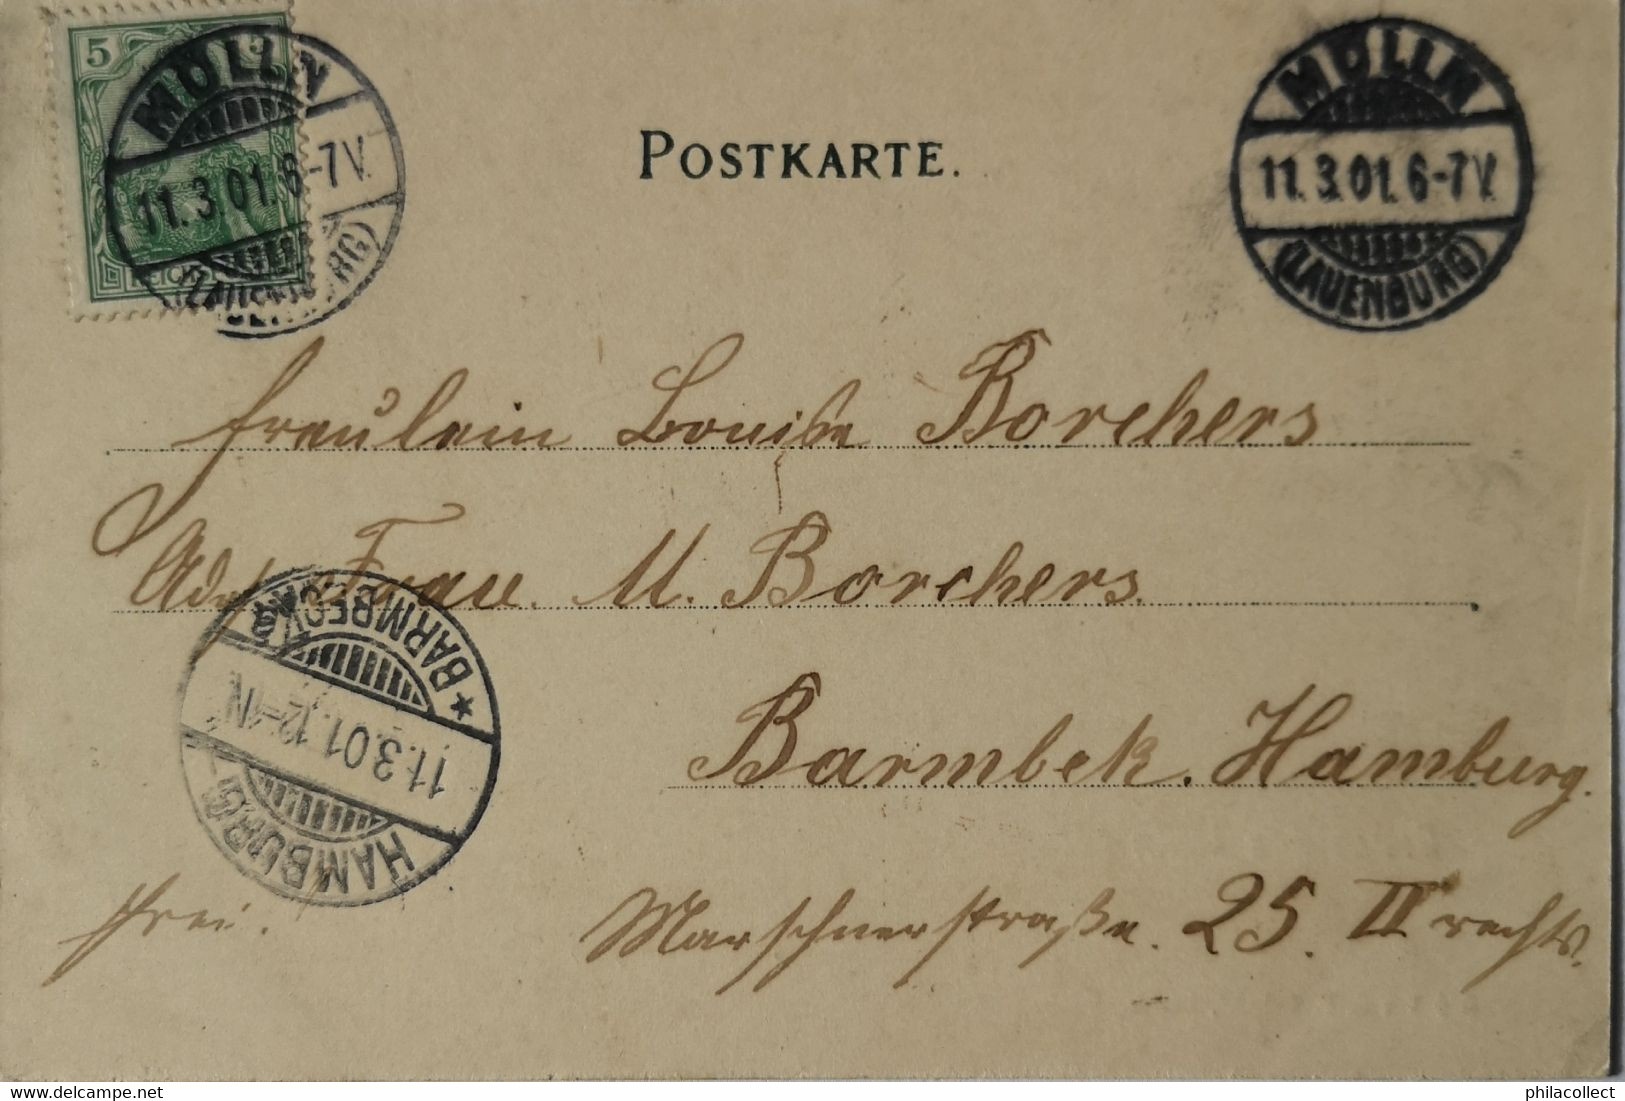 5
REICHSPOST
MÖLLN
11.3.01. 6-7V.
(LAUENBURG)
MÖLLN
11.3.01. 6-7V.
(LAUENBURG)
POSTKARTE.
Fräulein Louise Borchers
Adr. Frau M. Borchers.
Barmbek. Hamburg.
frei. Marschnerstraße. 25. II rechts.
HAMBURG-
11.3.01. 12-1N.
* BARMBECK
philacollect